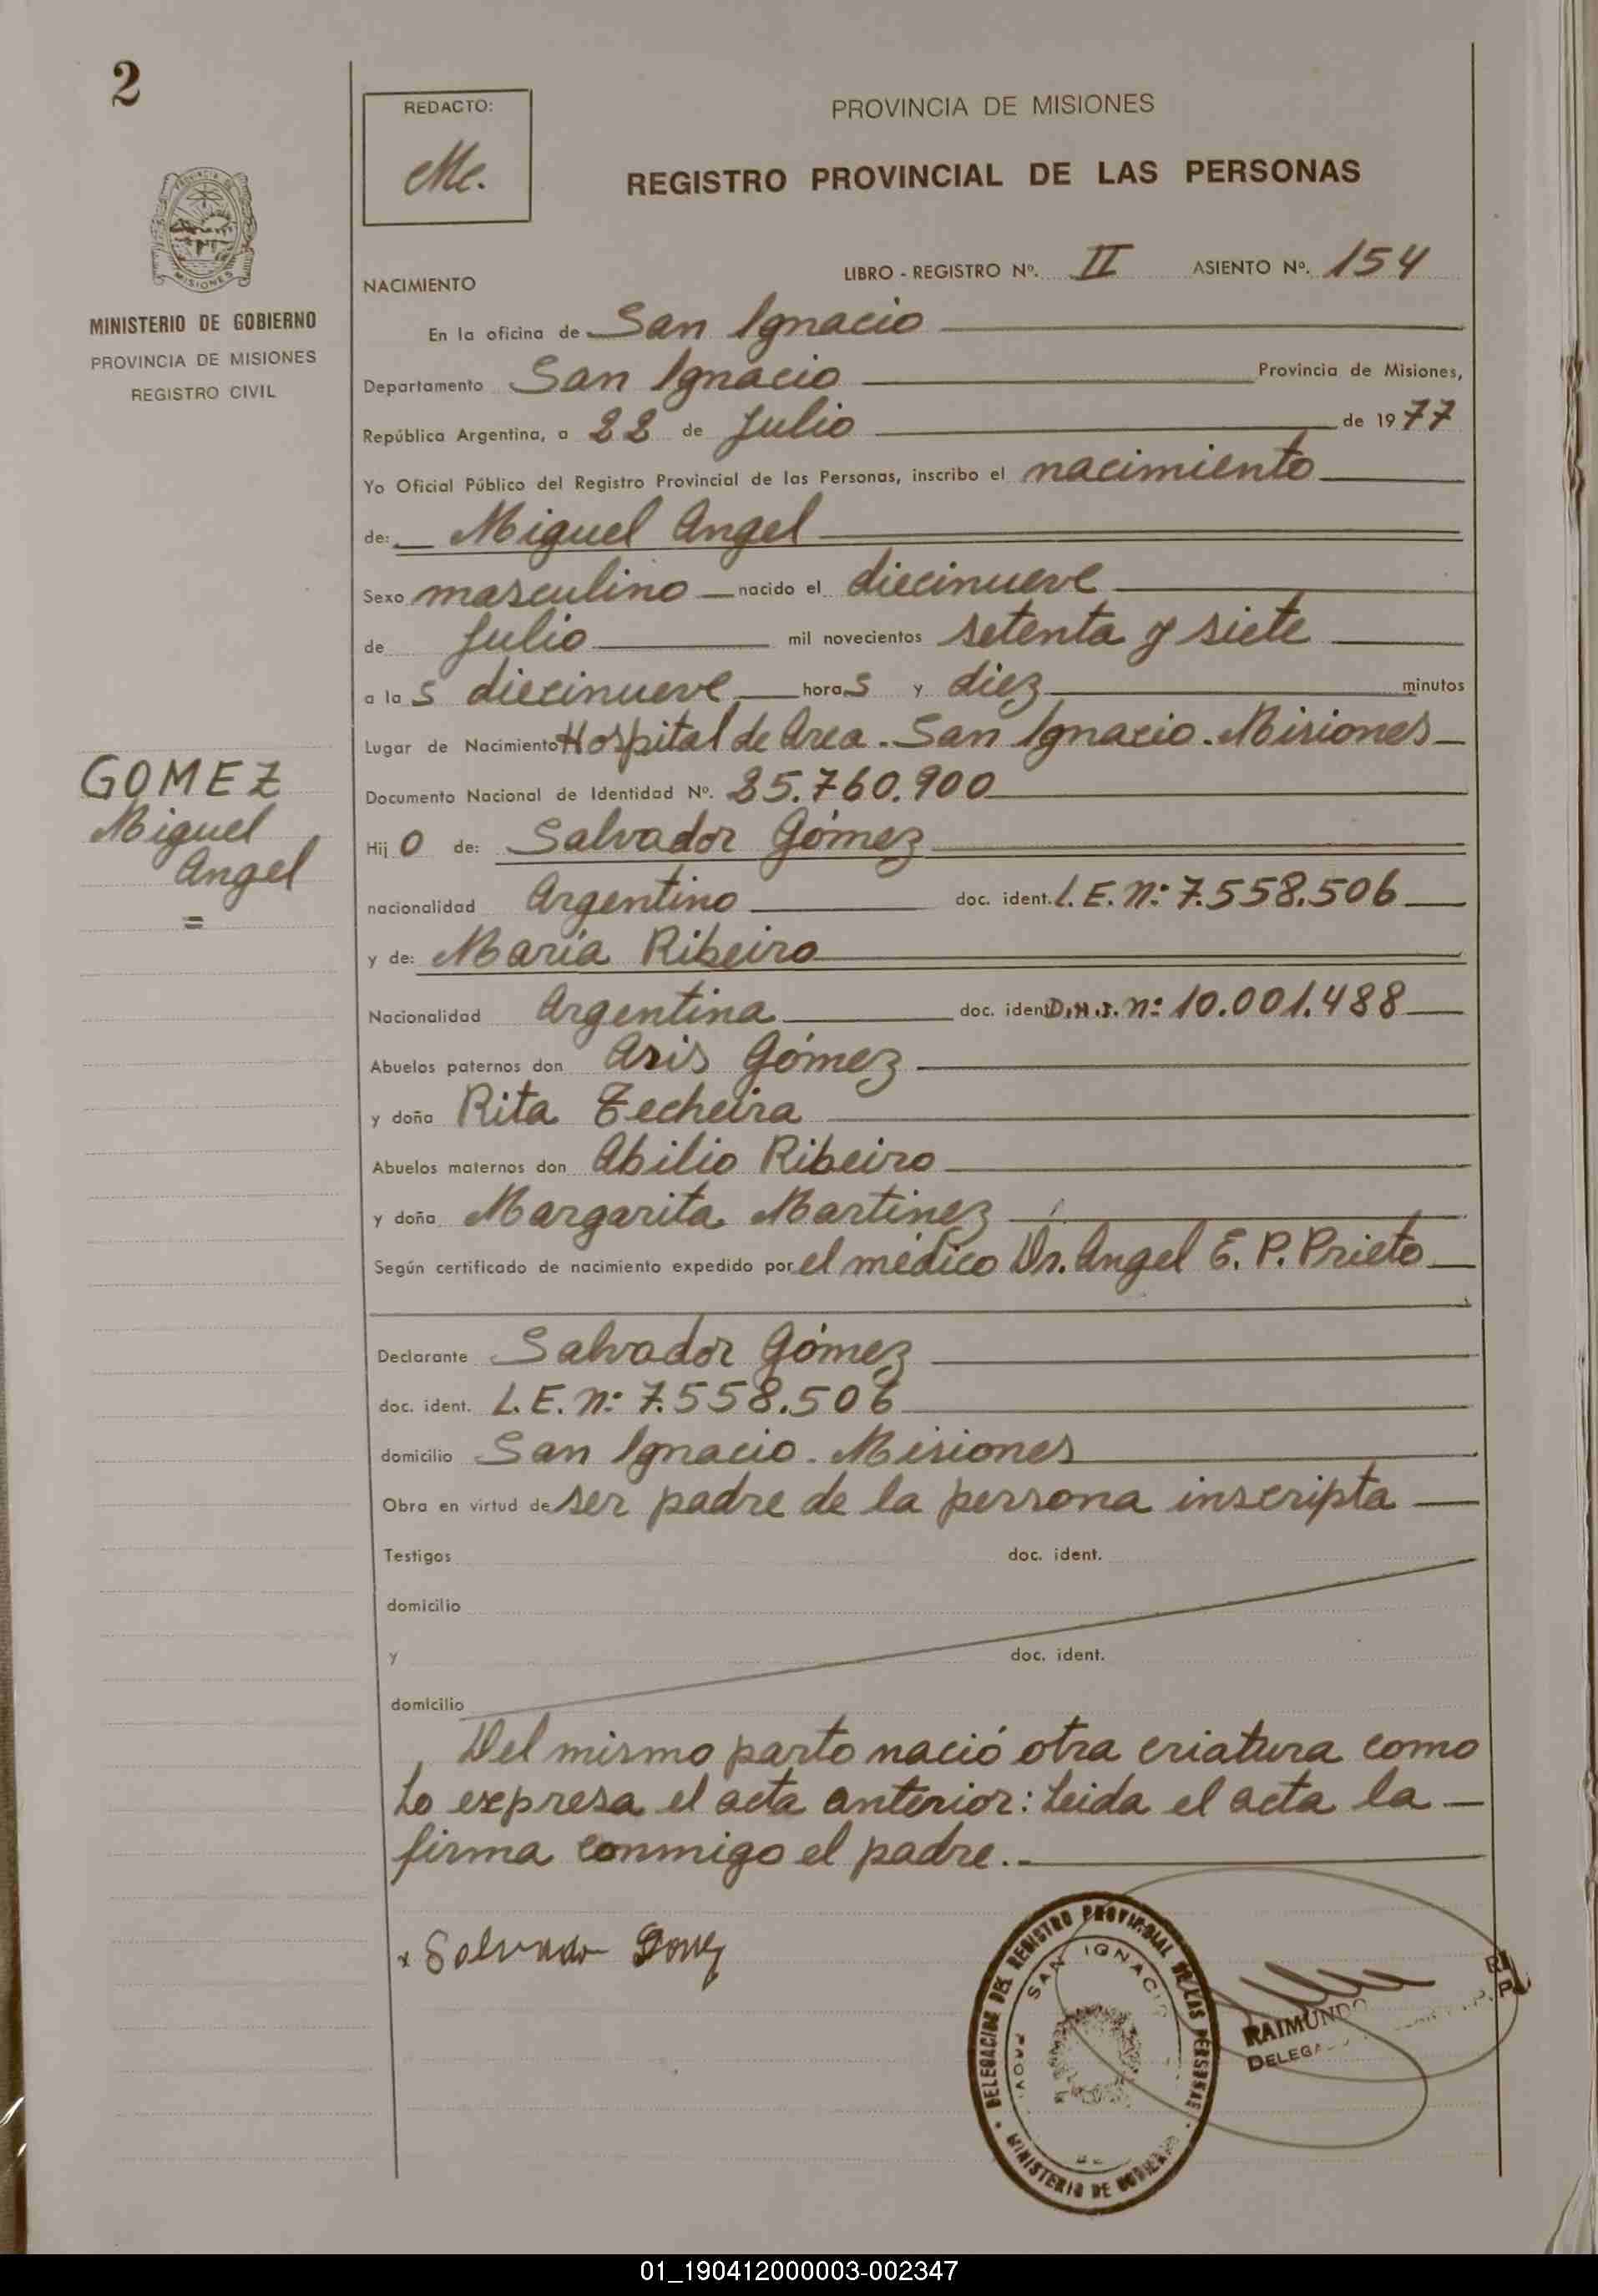 2
REDACTO:
Me.
PROVINCIA DE MISIONES
REGISTRO PROVINCIAL DE LAS PERSONAS
MISIONES
MINISTERIO DE GOBIERNO
PROVINCIA DE MISIONES
REGISTRO CIVIL
NACIMIENTO
LIBRO - REGISTRO Nº. II ASIENTO Nº. 154
En la oficina de San Ignacio
Departamento San Ignacio Provincia de Misiones,
República Argentina, a 22 de Julio de 1977
Yo Oficial Público del Registro Provincial de las Personas, inscribo el nacimiento
de: Miguel Angel
Sexo masculino nacido el diecinueve
de Julio mil novecientos setenta y siete
a las diecinueve horas y diez minutos
Lugar de Nacimiento Hospital de Area - San Ignacio - Misiones
Documento Nacional de Identidad Nº. 25.760.900
GOMEZ
Miguel
Angel
=
Hijo de: Salvador Gómez
nacionalidad Argentino doc. ident. L.E. Nº 7.558.506
y de: María Ribeiro
Nacionalidad Argentina doc. ident. D.N.I. Nº 10.001.488
Abuelos paternos don Asis Gómez
y doña Rita Techeira
Abuelos maternos don Abilio Ribeiro
y doña Margarita Martinez
Según certificado de nacimiento expedido por el médico Dr. Angel E. P. Prieto
Declarante Salvador Gómez
doc. ident. L.E. Nº 7.558.506
domicilio San Ignacio - Misiones
Obra en virtud de ser padre de la persona inscripta
Testigos doc. ident.
domicilio
y doc. ident.
domicilio
Del mismo parto nació otra criatura como
lo expresa el acta anterior: Leida el acta la
firma conmigo el padre.-
x Salvador Gomez
DELEGACION DEL REGISTRO PROVINCIAL DE LAS PERSONAS
SAN IGNACIO
PROV. DE
MINISTERIO DE GOBIERNO
RAIMUNDO
01_190412000003-002347